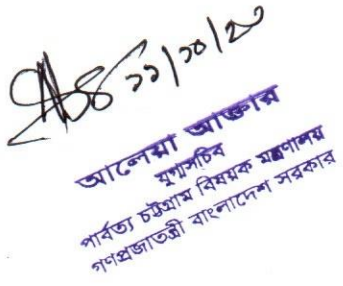 ২২/১০/২০
আলেয়া আক্তার
যুগ্মসচিব
পার্বত্য চট্টগ্রাম বিষয়ক মন্ত্রণালয়
গণপ্রজাতন্ত্রী বাংলাদেশ সরকার